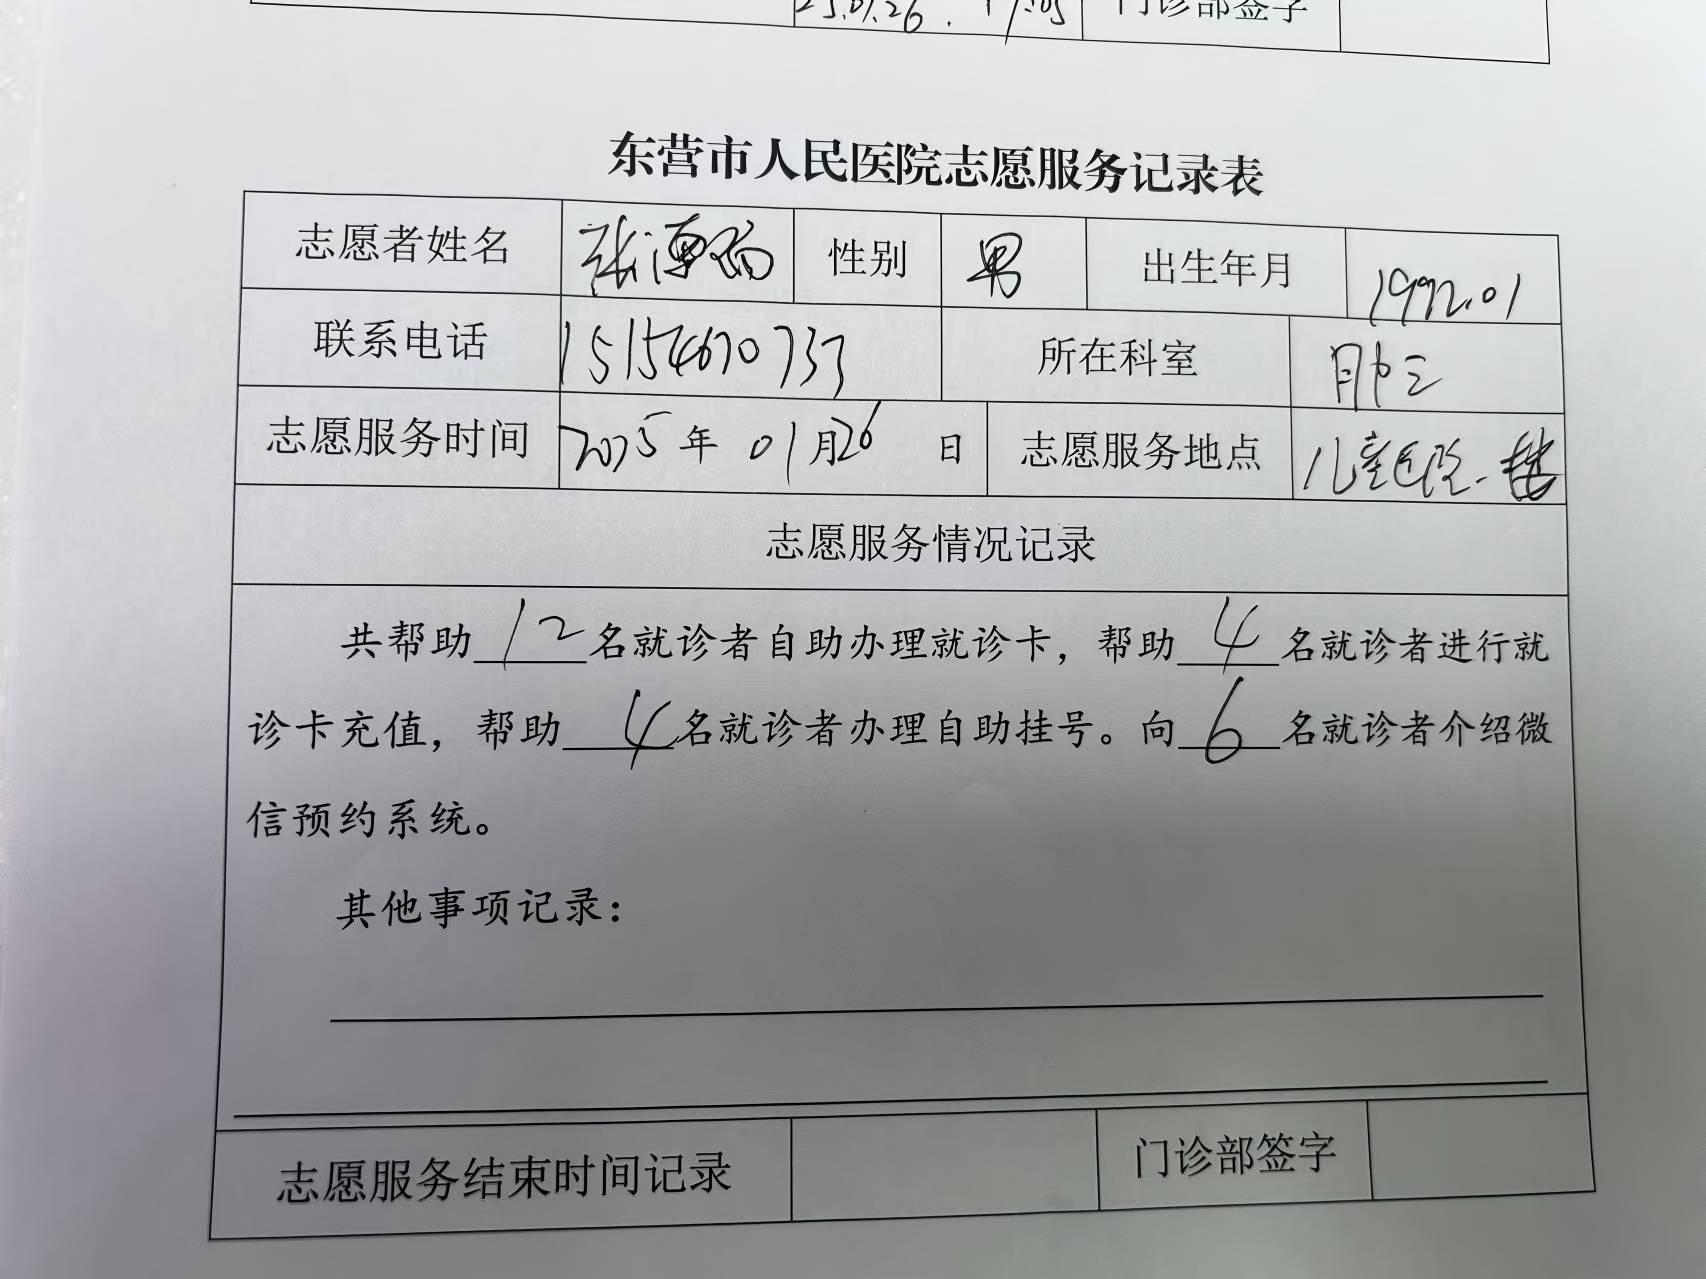 25.01.26. 17:05 门诊部签字
东营市人民医院志愿服务记录表
志愿者姓名 张 性别 男 出生年月 1992.01
联系电话 15154670733 所在科室 肿三
志愿服务时间 2025年 01月26 日 志愿服务地点 儿童医院一楼
志愿服务情况记录
共帮助 12 名就诊者自助办理就诊卡，帮助 4 名就诊者进行就
诊卡充值，帮助 4 名就诊者办理自助挂号。向 6 名就诊者介绍微
信预约系统。
其他事项记录：
志愿服务结束时间记录 门诊部签字